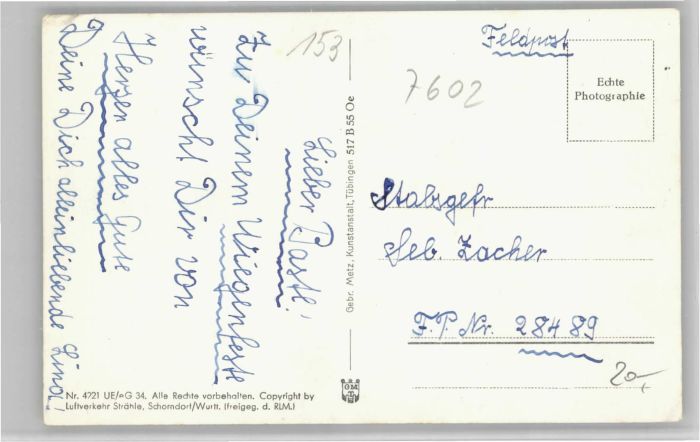 Lieber Pastl!
Zu Deinem Wiegenfeste
wünscht Dir von
Herzen alles Gute
Deine Dich alleinliebende Lina!
153
Feldpost
7602
Echte
Photographie
Stabsgefr
Seb. Zacher
F.P. Nr. 28489
20,-
Gebr. Metz, Kunstanstalt, Tübingen 517 B 55 Oe
Nr. 4721 UE/eG 34. Alle Rechte vorbehalten. Copyright by
Luftverkehr Strähle, Schorndorf/Württ. (freigeg. d. RLM.)